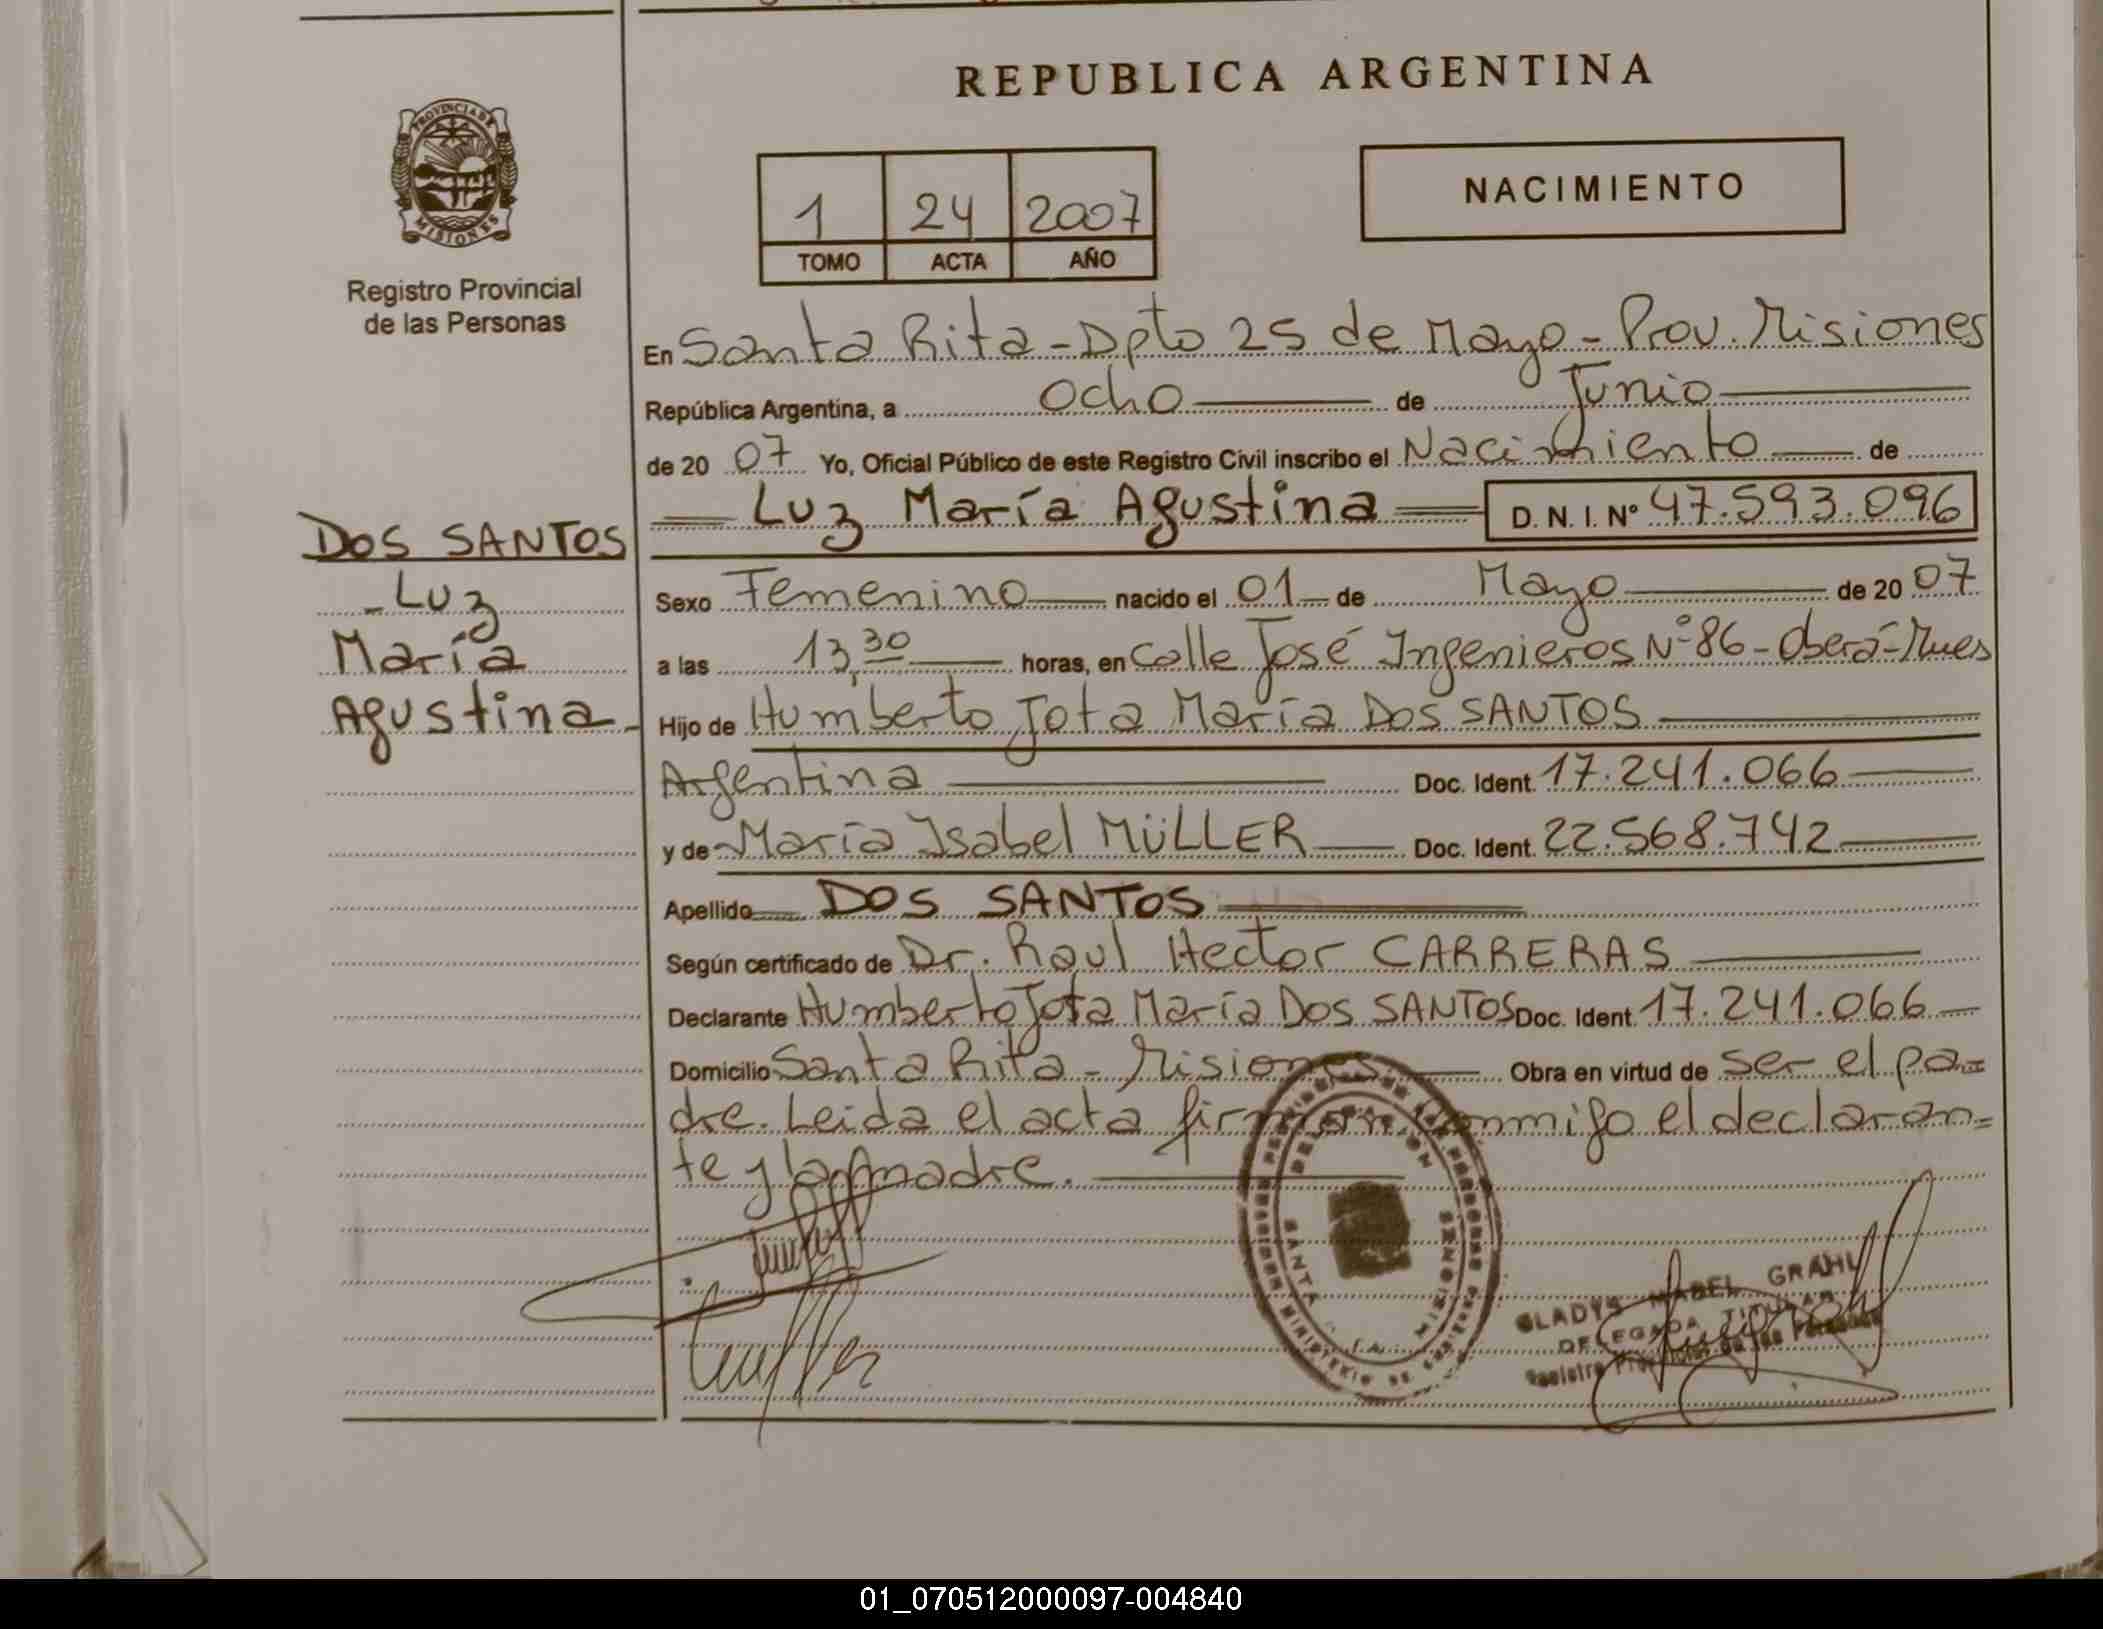 REPUBLICA ARGENTINA
PROVINCIA DE
MISIONES
Registro Provincial
de las Personas
NACIMIENTO
1 24 2007
TOMO ACTA AÑO
En Santa Rita - Dpto 25 de Mayo - Prov. Misiones
República Argentina, a Ocho de Junio
de 20 07 Yo, Oficial Público de este Registro Civil inscribo el Nacimiento de
Luz María Agustina D. N. I. Nº 47.593.096
DOS SANTOS
- Luz
María
Agustina -
Sexo Femenino nacido el 01 de Mayo de 20 07
a las 13,30 horas, en Calle José Ingenieros Nº 86 - Oberá - Mnes
Hijo de Humberto Jota María DOS SANTOS
Argentina Doc. Ident. 17.241.066
y de María Isabel MÜLLER Doc. Ident. 22.568.742
Apellido DOS SANTOS
Según certificado de Dr. Raul Hector CARRERAS
Declarante Humberto Jota María DOS SANTOS Doc. Ident. 17.241.066
Domicilio Santa Rita - Misiones Obra en virtud de ser el pa=
dre. Leida el acta firman conmigo el declaran=
te y la madre.
SANTA
GLADYS MABEL GRAHL
DELEGADA TITULAR
Registro Provincial de las Personas
01_070512000097-004840